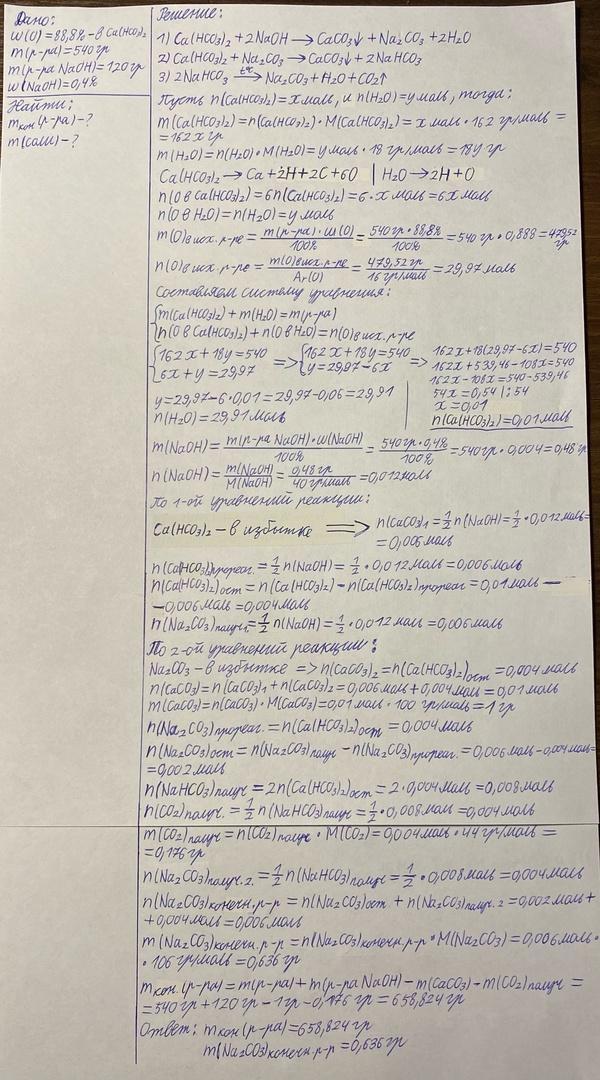 Дано:
w(O)=88,8% - в Ca(HCO₃)₂
m(р-ра)=540 гр
m(р-ра NaOH)=120 гр
w(NaOH)=0,4%
Найти:
mкон(р-ра)-?
m(соли)-?
Решение:
1) Ca(HCO₃)₂ + 2NaOH → CaCO₃↓ + Na₂CO₃ + 2H₂O
2) Ca(HCO₃)₂ + Na₂CO₃ → CaCO₃↓ + 2NaHCO₃
3) 2NaHCO₃ →(t°C) Na₂CO₃ + H₂O + CO₂↑
Пусть n(Ca(HCO₃)₂)=x моль, и n(H₂O)=y моль, тогда:
m(Ca(HCO₃)₂)=n(Ca(HCO₃)₂)·M(Ca(HCO₃)₂)=x моль·162 гр/моль=
=162x гр
m(H₂O)=n(H₂O)·M(H₂O)=y моль·18 гр/моль=18y гр
Ca(HCO₃)₂ → Ca+2H+2C+6O | H₂O → 2H+O
n(O в Ca(HCO₃)₂)=6n(Ca(HCO₃)₂)=6·x моль=6x моль
n(O в H₂O)=n(H₂O)=y моль
m(O)в исх. р-ре = m(р-ра)·w(O)/100% = 540 гр·88,8%/100% = 540 гр·0,888=479,52 гр
n(O)в исх. р-ре = m(O)в исх. р-ре/Ar(O) = 479,52 гр/16 гр/моль = 29,97 моль
Составляем систему уравнения:
{m(Ca(HCO₃)₂)+m(H₂O)=m(р-ра)
n(O в Ca(HCO₃)₂)+n(O в H₂O)=n(O)в исх. р-ре
{162x+18y=540 => {162x+18y=540 => 162x+18(29,97-6x)=540
6x+y=29,97 y=29,97-6x 162x+539,46-108x=540
162x-108x=540-539,46
y=29,97-6·0,01=29,97-0,06=29,91 54x=0,54 |:54
x=0,01
n(H₂O)=29,91 моль n(Ca(HCO₃)₂)=0,01 моль
m(NaOH)= m(р-ра NaOH)·w(NaOH)/100% = 540 гр·0,4%/100% = 540 гр·0,004=0,48 гр
n(NaOH)= m(NaOH)/M(NaOH) = 0,48 гр/40 гр/моль = 0,012 моль
По 1-ой уравнений реакции:
Ca(HCO₃)₂ - в избытке => n(CaCO₃)₁=½n(NaOH)=½·0,012 моль=
=0,006 моль
n(Ca(HCO₃)₂)прореаг.=½n(NaOH)=½·0,012 моль=0,006 моль
n(Ca(HCO₃)₂)ост=n(Ca(HCO₃)₂)-n(Ca(HCO₃)₂)прореаг=0,01 моль-
-0,006 моль=0,004 моль
n(Na₂CO₃)получ₁=½n(NaOH)=½·0,012 моль=0,006 моль
По 2-ой уравнений реакции:
Na₂CO₃ - в избытке => n(CaCO₃)₂=n(Ca(HCO₃)₂)ост=0,004 моль
n(CaCO₃)=n(CaCO₃)₁+n(CaCO₃)₂=0,006 моль+0,004 моль=0,01 моль
m(CaCO₃)=n(CaCO₃)·M(CaCO₃)=0,01 моль·100 гр/моль=1 гр
n(Na₂CO₃)прореаг.=n(Ca(HCO₃)₂)ост=0,004 моль
n(Na₂CO₃)ост=n(Na₂CO₃)получ-n(Na₂CO₃)прореаг.=0,006 моль-0,004 моль=
=0,002 моль
n(NaHCO₃)получ=2n(Ca(HCO₃)₂)ост=2·0,004 моль=0,008 моль
n(CO₂)получ.=½n(NaHCO₃)получ=½·0,008 моль=0,004 моль
m(CO₂)получ=n(CO₂)получ·M(CO₂)=0,004 моль·44 гр/моль=
=0,176 гр
n(Na₂CO₃)получ.2.=½n(NaHCO₃)получ=½·0,008 моль=0,004 моль
n(Na₂CO₃)конечн.р-р=n(Na₂CO₃)ост.+n(Na₂CO₃)получ.2=0,002 моль+
+0,004 моль=0,006 моль
m(Na₂CO₃)конечн.р-р=n(Na₂CO₃)конечн.р-р·M(Na₂CO₃)=0,006 моль·
·106 гр/моль=0,636 гр
mкон.(р-ра)=m(р-ра)+m(р-ра NaOH)-m(CaCO₃)-m(CO₂)получ=
=540 гр+120 гр-1 гр-0,176 гр=658,824 гр
Ответ: mкон(р-ра)=658,824 гр
m(Na₂CO₃)конечн.р-р=0,636 гр